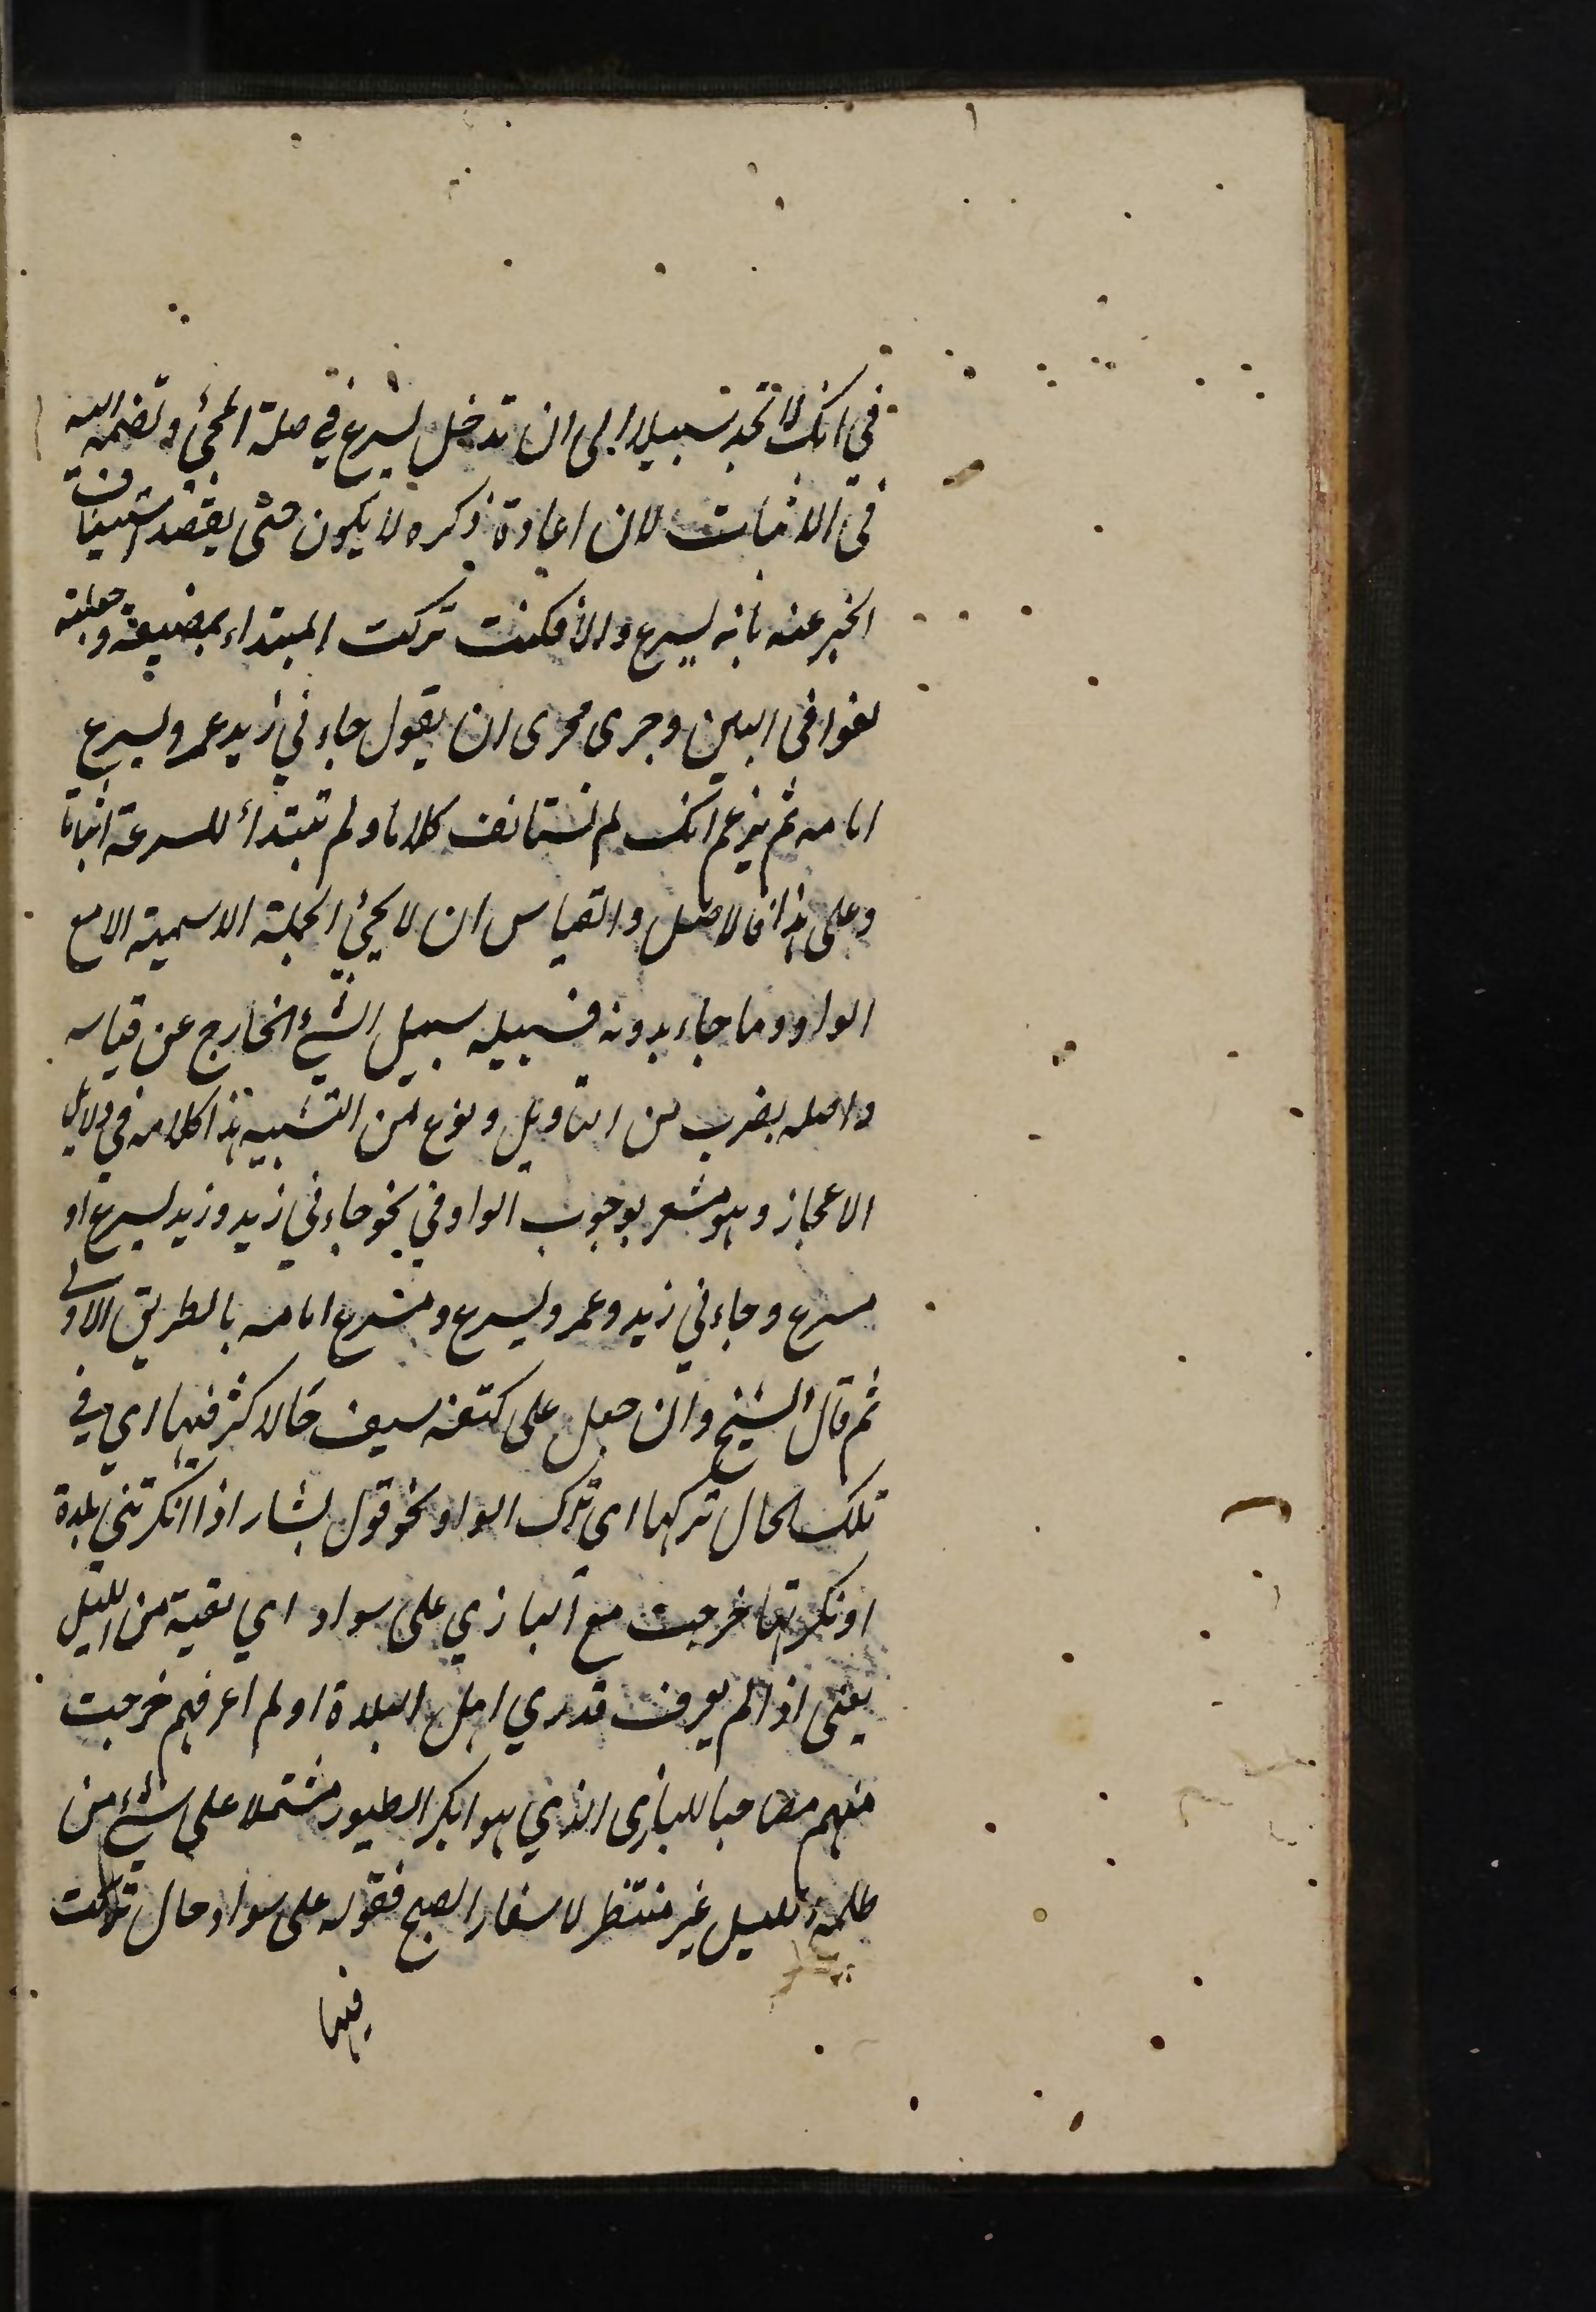 في انك لا تجد سبيلا الى ان تدخل يسرع في صلة المجئ وتضمه اليه
في الاثبات لان اعادة ذكره لا يكون حتى يقصد استيناف
الخبر عنه بانه يسرع والا فكنت تركت المبتداء بمضيعة وجعلته
لغوا في البين وجرى مجرى ان يقول جاءني زيد عمرو يسرع
امامه ثم يزعم انك لم تستانف كلاما ولم تبتدأ للسرعة اثباتا
وعلى هذا فالاصل والقياس ان لا يجئ الجملة الاسمية الا مع
الواو وما جاء بدونه فسبيله سبيل الشئ الخارج عن قياسه
واصله بضرب من التاويل ونوع من التشبيه هذا كلامه في دلايل
الاعجاز وهو مشعر بوجوب الواو في نحو جاءني زيد وزيد يسرع او
مسرع وجاءني زيد وعمرو يسرع ومسرع امامه بالطريق الاولى
ثم قال الشيخ وان جعل على كتفه سيف حالا كثر فيها اي في
تلك الحال تركها اي ترك الواو نحو قول بشار اذا انكرتني بلدة
او نكرتها خرجت مع البازي على سواد اي بقية من الليل
يعنى اذا لم يعرف قدري اهل البلدة او لم اعرفهم خرجت
منهم مصاحبا للبازى الذي هو ابكر الطيور مشتملا على شئ من
ظلمة الليل غير منتظر لاسفار الصبح فقوله على سواد حال تركت
فيها